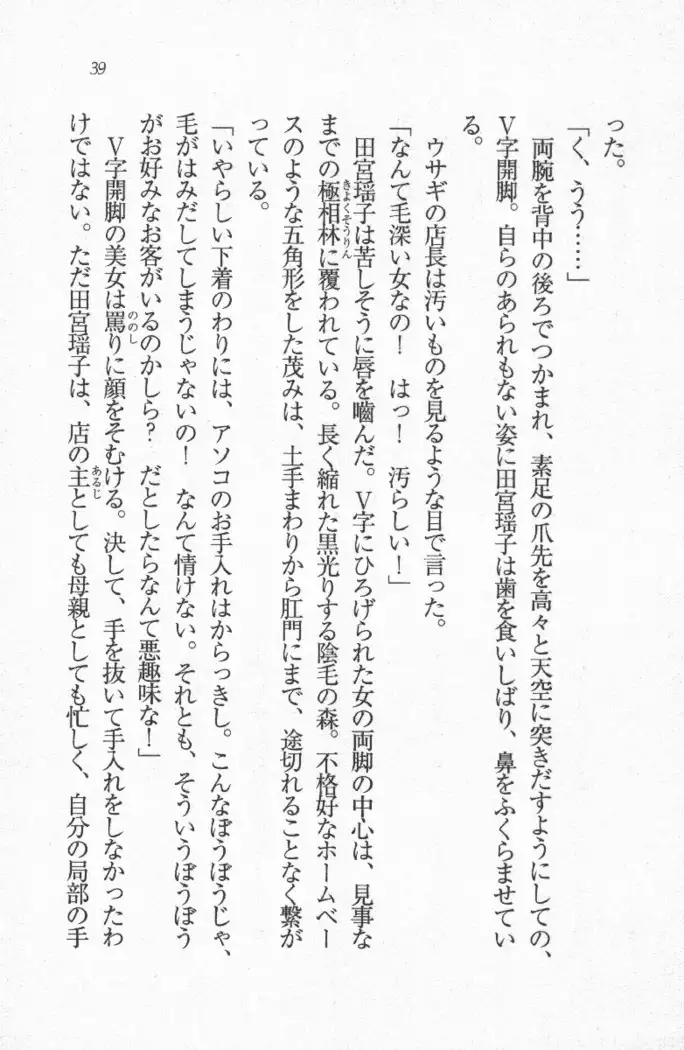 39
った。
「く、うう……」
両腕を背中の後ろでつかまれ、素足の爪先を高々と天空に突きだすようにしての、
V字開脚。自らのあられもない姿に田宮瑶子は歯を食いしばり、鼻をふくらませてい
る。
ウサギの店長は汚いものを見るような目で言った。
「なんて毛深い女なの！　はっ！　汚らしい！」
田宮瑶子は苦しそうに唇を嚙んだ。V字にひろげられた女の両脚の中心は、見事な
きよくそうりん
までの極相林に覆われている。長く縮れた黒光りする陰毛の森。不格好なホームベー
スのような五角形をした茂みは、土手まわりから肛門にまで、途切れることなく繋が
っている。
「いやらしい下着のわりには、アソコのお手入れはからっきし。こんなぼうぼうじゃ、
毛がはみだしてしまうじゃないの！　なんて情けない。それとも、そういうぼうぼう
がお好みなお客がいるのかしら？　だとしたらなんて悪趣味な！」
ののし
V字開脚の美女は罵りに顔をそむける。決して、手を抜いて手入れをしなかったわ
あるじ
けではない。ただ田宮瑶子は、店の主としても母親としても忙しく、自分の局部の手